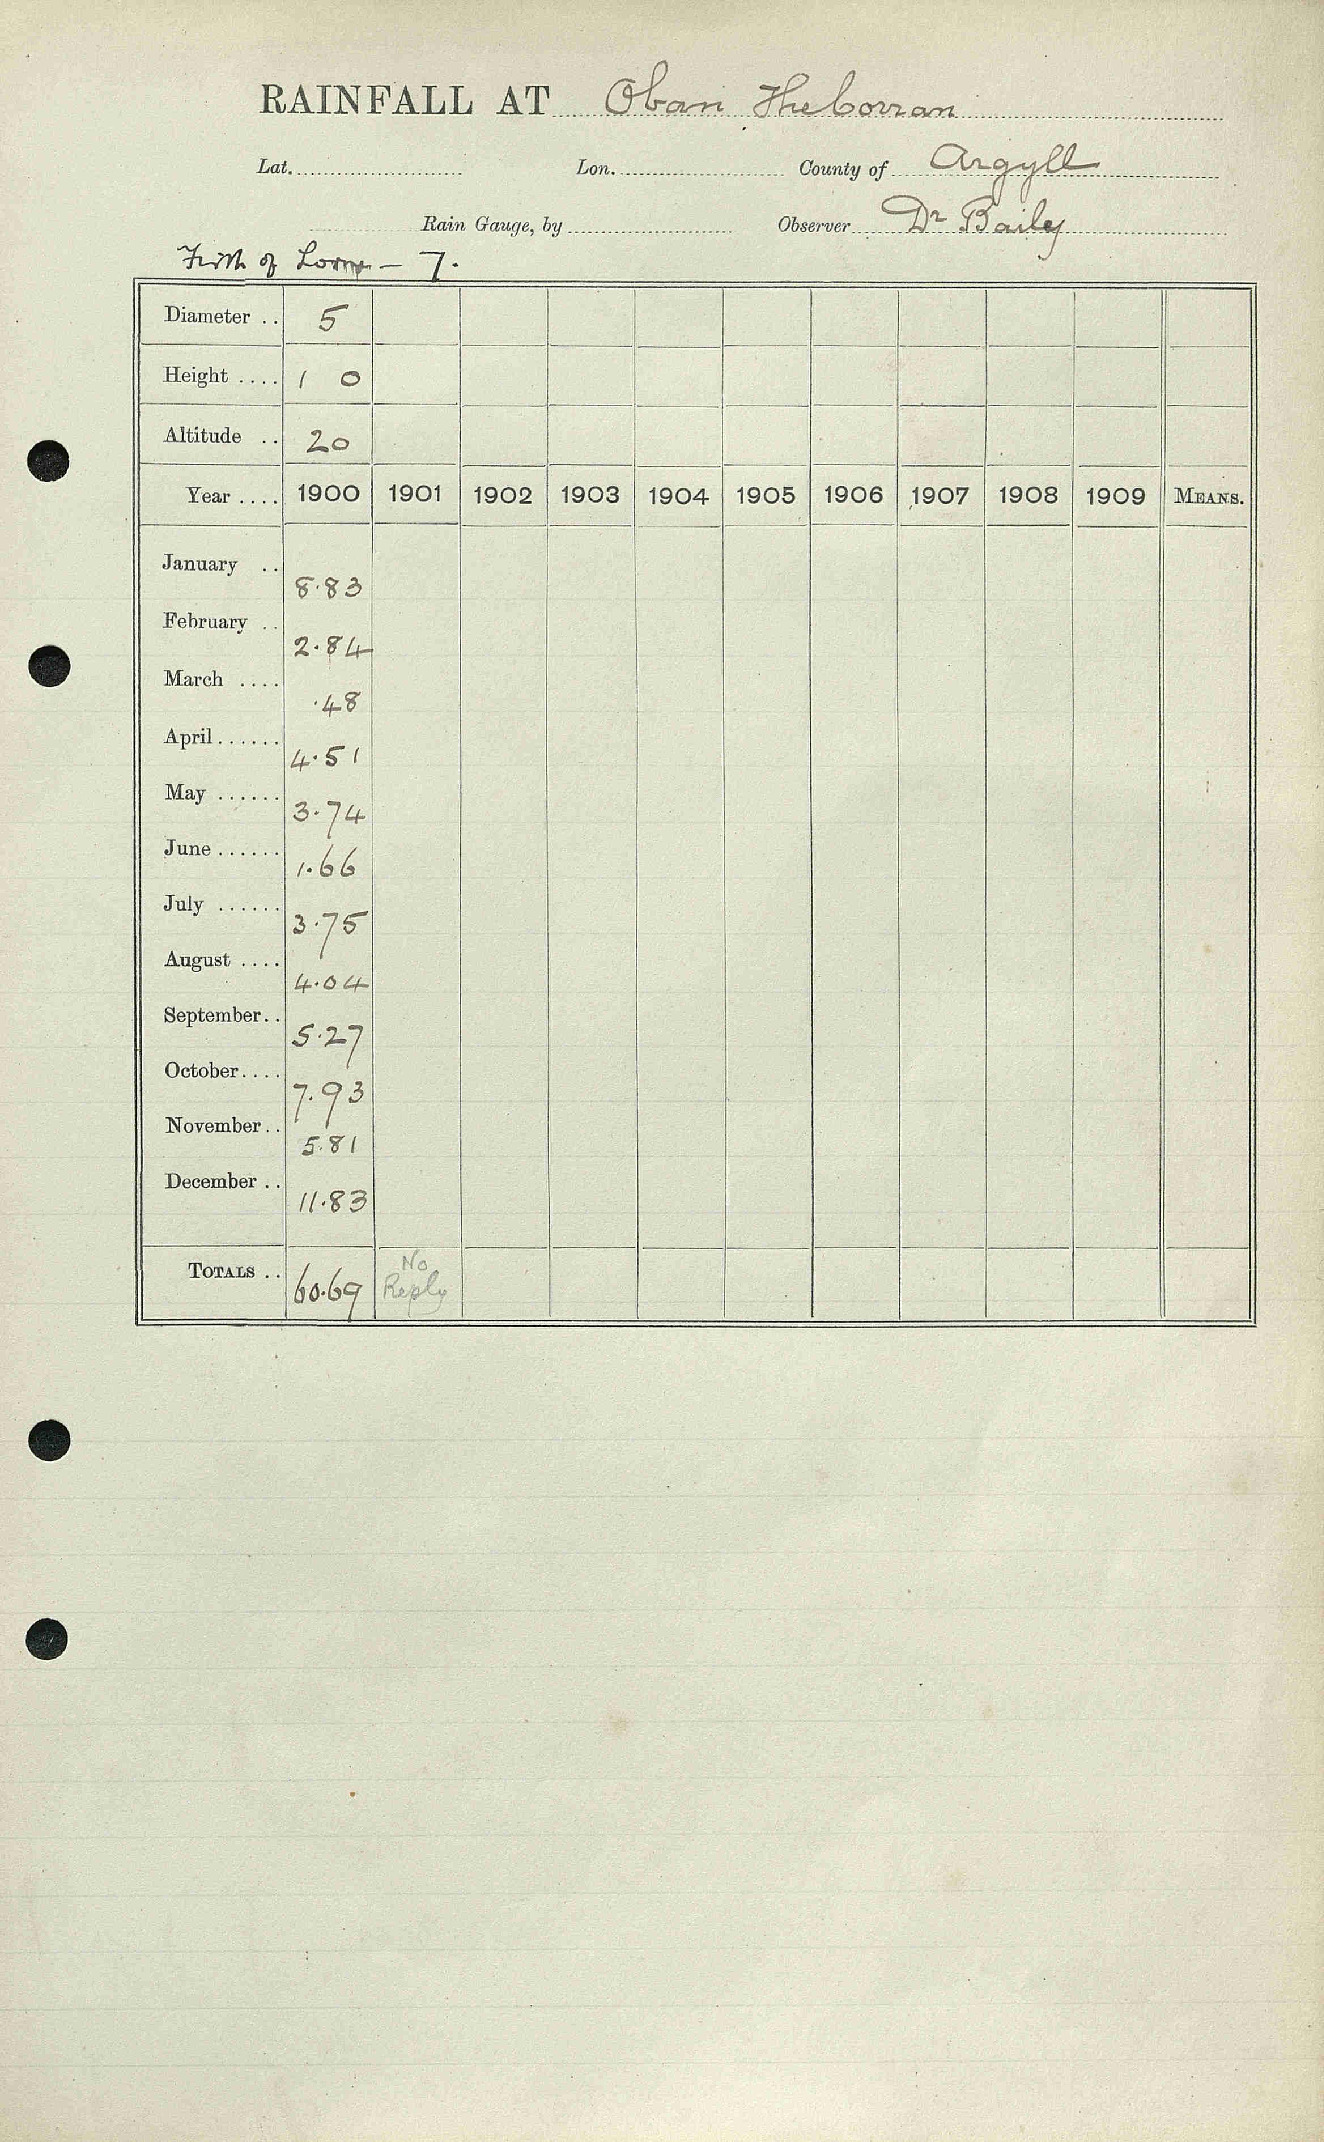 RAINFALL AT Oban The Corran
Lat. Lon. County of Argyll
Rain Gauge, by Observer Dr Bailey
Firth of Lorne - 7.
Diameter .. 5
Height .... 1 0
Altitude .. 20
Year .... 1900 1901 1902 1903 1904 1905 1906 1907 1908 1909 MEANS.
January .. 8.83
February .. 2.84
March .... .48
April ...... 4.51
May ...... 3.74
June ...... 1.66
July ...... 3.75
August .... 4.04
September .. 5.27
October .... 7.93
November .. 5.81
December .. 11.83
TOTALS .. 60.69 No Reply